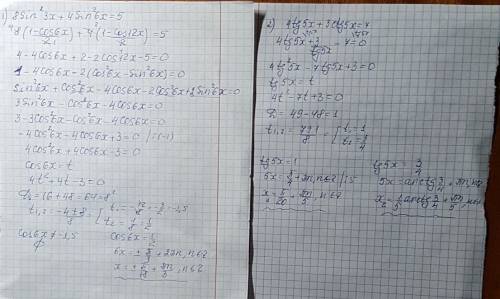 1) 8sin²3x + 4sin²6x = 5
8(1-cos6x)/2 + 4(1-cos12x)/2 = 5
4 - 4cos6x + 2 - 2cos12x - 5 = 0
1 - 4cos6x - 2(cos²6x - sin²6x) = 0
sin²6x + cos²6x - 4cos6x - 2cos²6x + 2sin²6x = 0
3sin²6x - cos²6x - 4cos6x = 0
3 - 3cos²6x - cos²6x - 4cos6x = 0
-4cos²6x - 4cos6x + 3 = 0 /·(-1)
4cos²6x + 4cos6x - 3 = 0
cos6x = t
4t² + 4t - 3 = 0
D = 16 + 48 = 64 = 8²
t₁,₂ = (-4 ± 8)/8 = [ t₁ = -12/8 = -3/2 = -1,5
t₂ = 1/2
cos6x ≠ -1,5
∅
cos6x = 1/2
6x = ± π/3 + 2πn, n∈Z
x = ± π/18 + πn/3, n∈Z
2) 4tg5x + 3ctg5x = 7
4tg5x + 3/tg5x - 7 = 0
4tg²5x - 7tg5x + 3 = 0
tg5x = t
4t² - 7t + 3 = 0
D = 49 - 48 = 1
t₁,₂ = (7±1)/8 = [ t₁ = 1
t₂ = 3/4
tg5x = 1
5x = π/4 + πn, n∈Z /:5
x = π/20 + πn/5, n∈Z
tg5x = 3/4
5x = arctg 3/4 + πn, n∈Z
x = 1/5 arctg 3/4 + πn/5, n∈Z